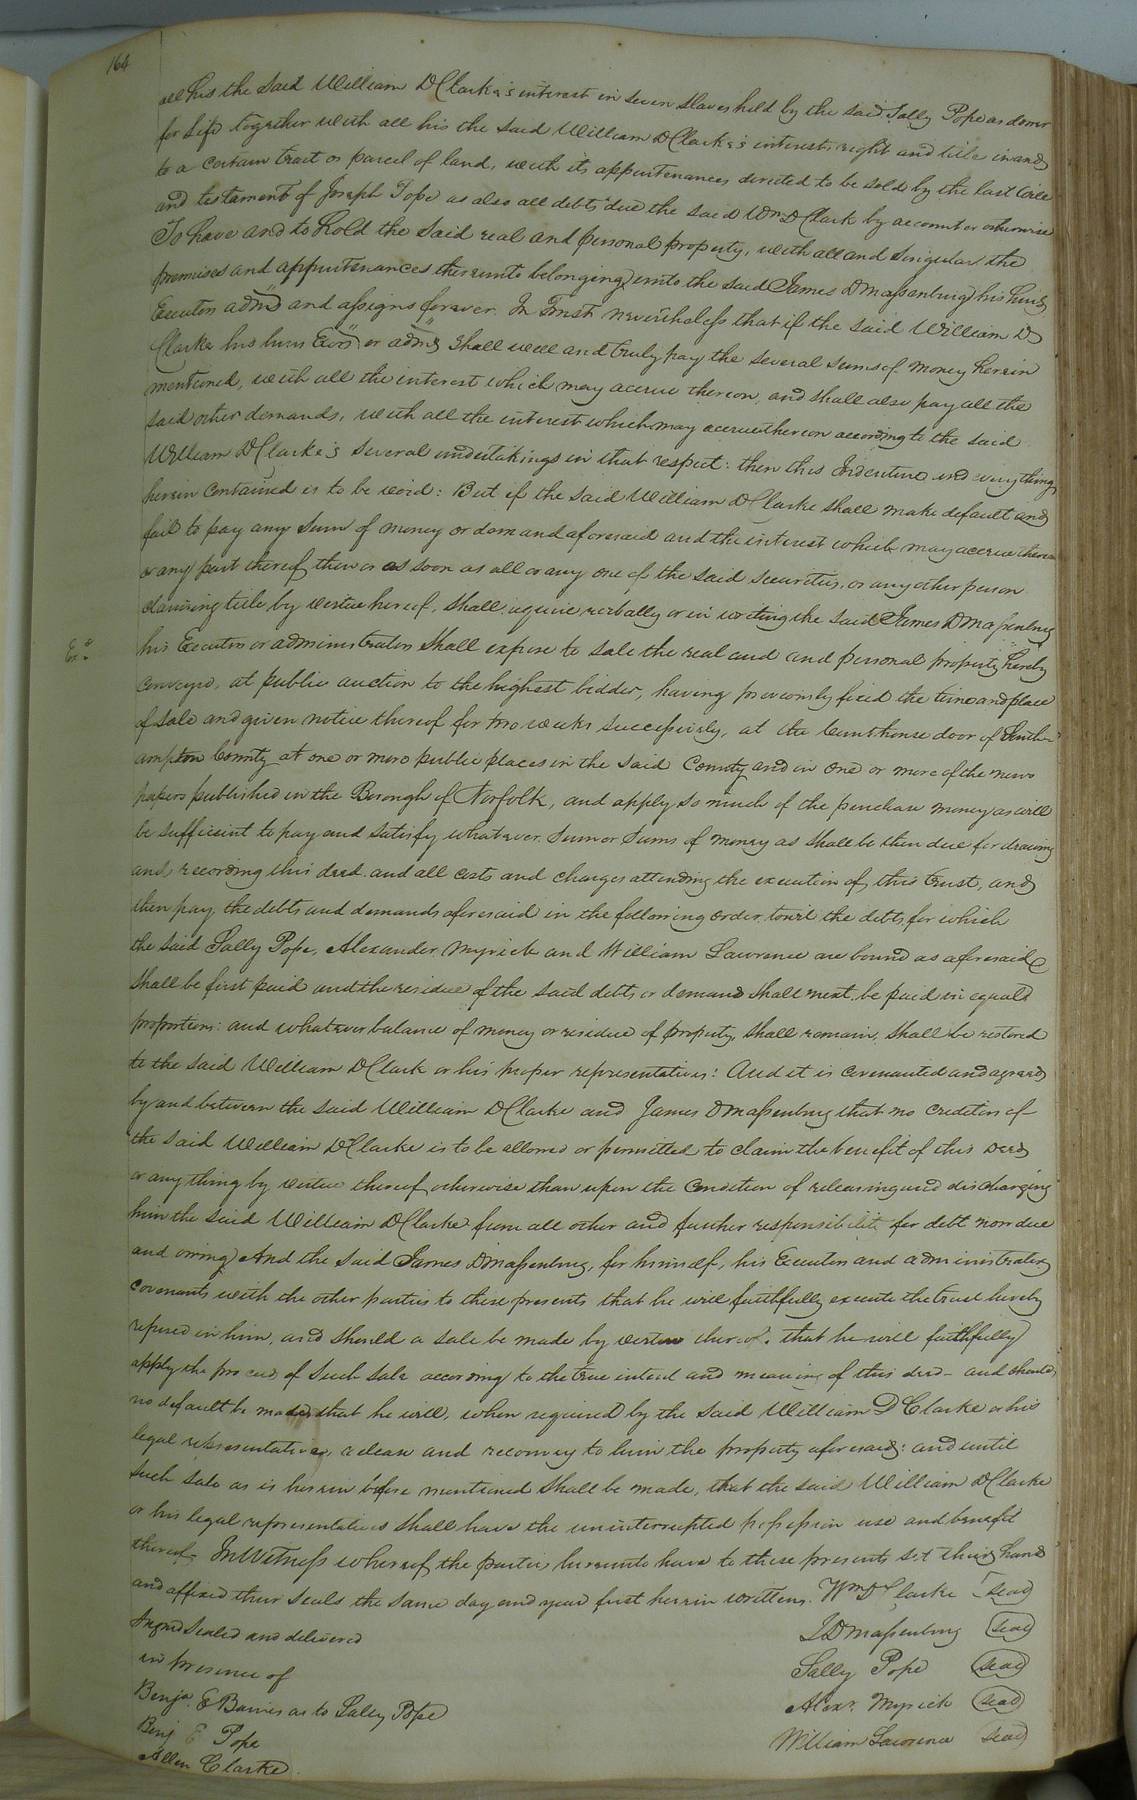 164
all his the said William D Clarke's interest in seven slaves held by the said Sally Pope as dower
for life together with all his the said William D Clarke's interest, right and title in and
to a certain tract or parcel of land, with its appurtenances directed to be sold by the last will
and testament of Joseph Pope as also all debts due the said Wm D Clark by account or otherwise
To have and to hold the said real and personal property, with all and singular the
premises and appurtenances thereunto belonging unto the said James D Massenburg his heirs
Executors admrs and assigns forever. In Trust nevertheless that if the said William D
Clarke his heirs Exors or admrs shall well and truly pay the several sums of money herein
mentioned, with all the interest which may accrue thereon, and shall also pay all the
said other demands, with all the interest which may accrue thereon according to the said
William D Clarke's several undertakings in that respect: then this Indenture and everything
herein contained is to be void: But if the said William D Clarke shall make default and
fail to pay any sum of money or demand aforesaid and the interest which may accrue thereon
or any part thereof then or as soon as all or any one of the said securities, or any other person
claiming title by virtue hereof, shall require verbally or in writing the said James D Massenburg
Ex.
his Executors or administrators shall expose to sale the real and and personal property hereby
conveyed, at public auction to the highest bidder, having previously fixed the time and place
of sale and given notice thereof for two weeks successively, at the Courthouse door of South-
ampton County at one or more public places in the said County and in one or more of the news
papers published in the Borough of Norfolk, and apply so much of the purchase money as will
be sufficient to pay and satisfy whatever sum or sums of money as shall be then due for drawing
and recording this deed and all costs and charges attending the execution of this trust, and
then pay, the debts and demands aforesaid in the following order, towit the debts for which
the said Sally Pope, Alexander Myrick and William Lawrence are bound as aforesaid
shall be first paid and the residue of the said debts or demand shall next be paid in equal
proportions: and whatever balance of money or residue of property, shall remain, shall be restored
to the said William D Clark or his proper representatives: And it is covenanted and agreed
by and between the said William D Clarke and James D Massenburg that no creditor of
the said William D Clarke is to be allowed or permitted to claim the benefit of this Deed
or any thing by virtue thereof otherwise than upon the condition of releasing and discharging
him the said William D Clarke from all other and further responsibility for debt now due
and owing And the said James D Massenburg, for himself, his Executors and administrators
covenants with the other parties to these presents that he will faithfully execute the trust hereby
reposed in him, and should a sale be made by virtue thereof. that he will faithfully
apply the proceeds of such sale according to the true intent and meaning of this deed - and should
no default be made, that he will, when required by the said William D Clarke or his
legal representatives, release and reconvey to him the property aforesaid: and until
such sale as is herein before mentioned shall be made, that the said William D Clarke
or his legal representatives shall have the uninterrupted possession use and benefit
thereof. In Witness whereof the parties hereunto have to these presents set their hand
and affixed their seals the same day and year first herein written. Wm D Clarke seal
Signed sealed and delivered
J D Massenburg seal
in presence of
Sally Pope seal
Benja. E Barnes as to Sally Pope
Alexr. Myrick seal
Benj E Pope
William Lawrence seal
Allen Clarke.